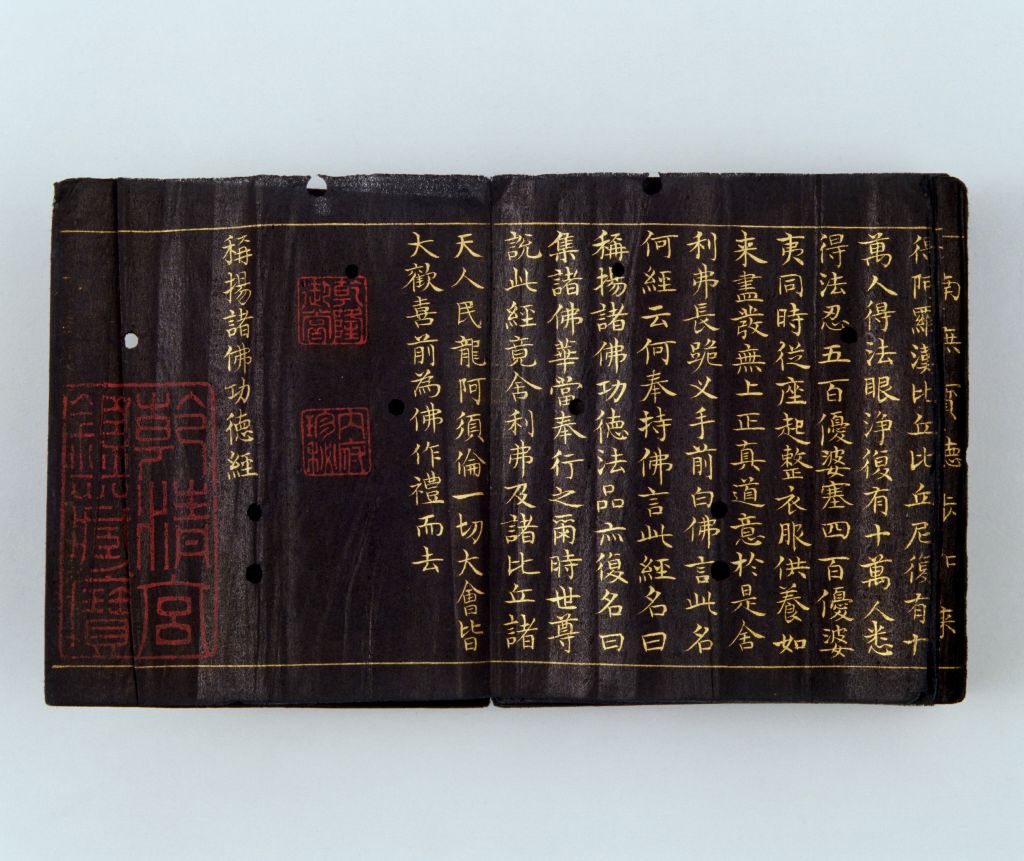 南無寶德步来
得阿羅漢比丘比丘尼復有十
萬人得法眼淨復有十萬人悉
得法忍五百優婆塞四百優婆
夷同時從座起整衣服供養如
来盡發無上正真道意於是舍
利弗長跪叉手前白佛言此名
何經云何奉持佛言此經名曰
稱揚諸佛功德法品亦復名曰
集諸佛華當奉行之爾時世尊
說此經竟舍利弗及諸比丘諸
天人民龍阿須倫一切大會皆
大歡喜前為佛作禮而去
乾隆
御賞
內府
珍秘
稱揚諸佛功德經
乾清宮
鑒藏寶